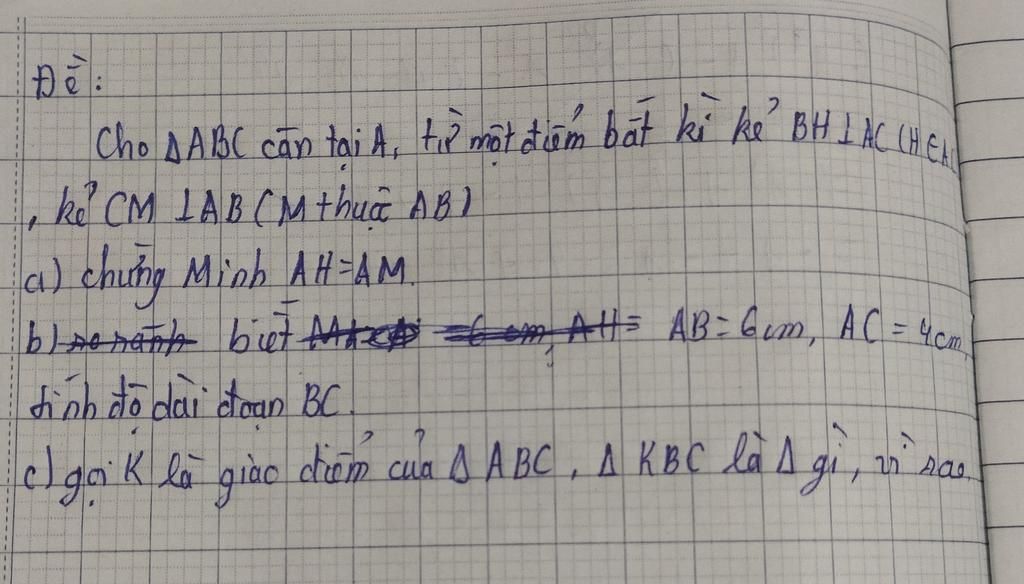 Đề:
Cho ΔABC cân tại A, từ một điểm bất kì kẻ BH⊥AC (H∈AC
, kẻ CM ⊥AB (M thuộc AB)
a) chứng Minh AH=AM.
b) biết AB=6cm, AC=4cm,
tính độ dài đoạn BC.
c) gọi K là giao điểm của Δ ABC, Δ KBC là Δ gì, vì sao.